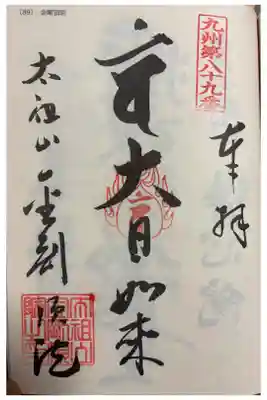 九州第八十九番
奉拝
大日如来
太祖山 金剛頂院
(89) 金剛頂院